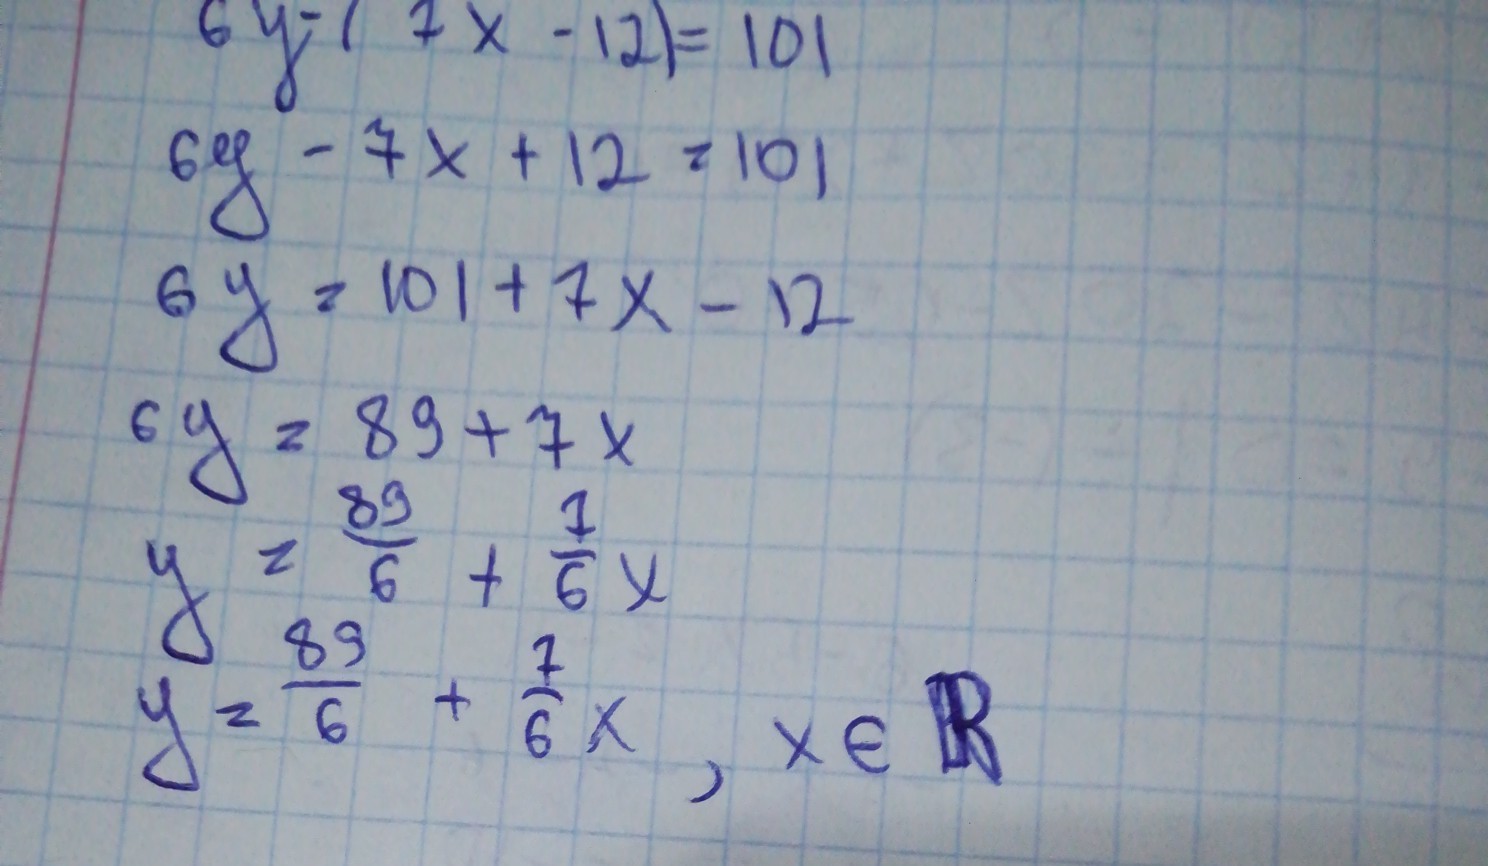 6y-(7x-12)=101
6y-7x+12=101
6y=101+7x-12
6y=89+7x
y=89/6+7/6x
y=89/6+7/6x, x∈ℝ